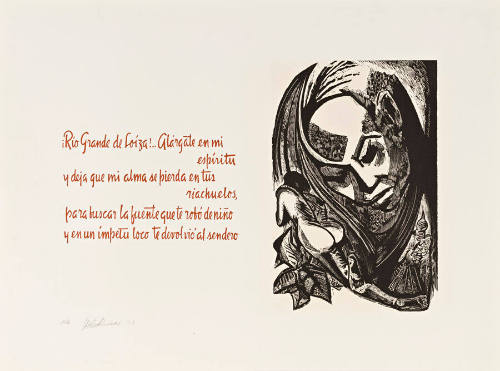 ¡Río Grande de Loíza!.. Alárgate en mi
espíritu
y deja que mi alma se pierda en tus
riachuelos,
para buscar la fuente que te robó de niño
y en un ímpetu loco te devolvió al sendero